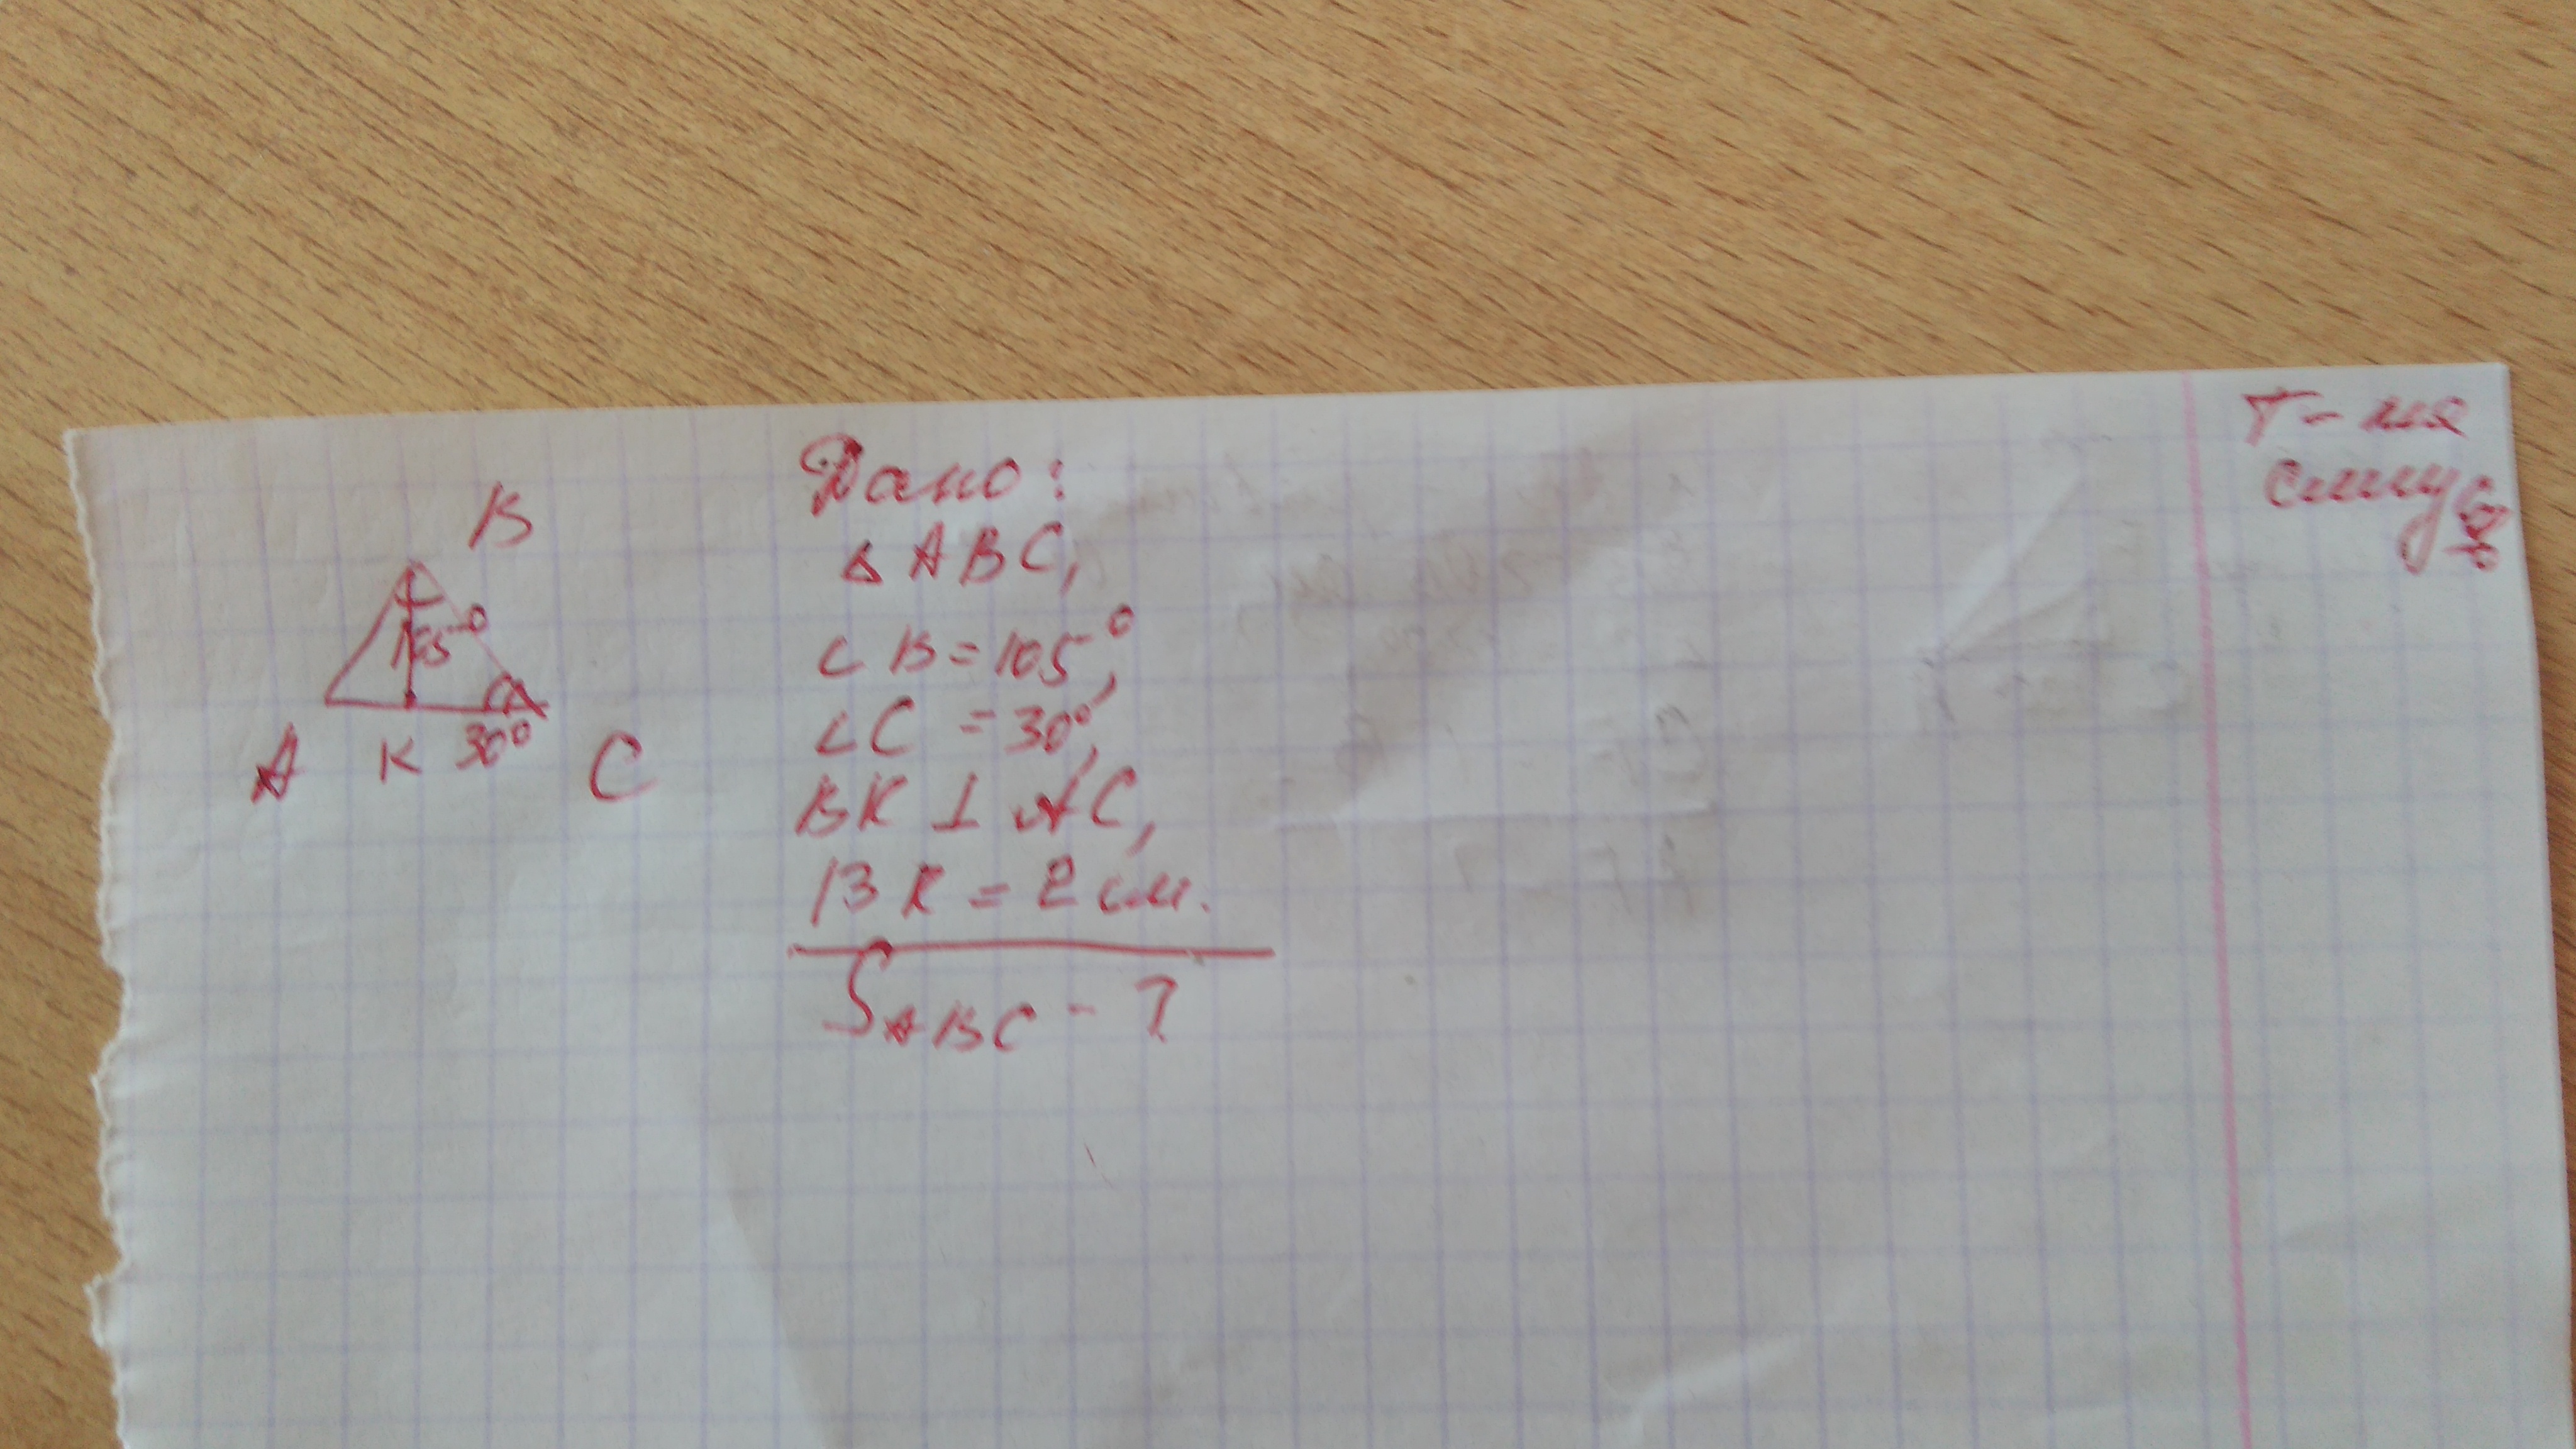 B
105°
A K 30° C
Дано:
△ABC,
∠B=105°,
∠C=30°,
BK ⊥ AC,
BK=2см.
S ABC - ?
Т-ма
синус